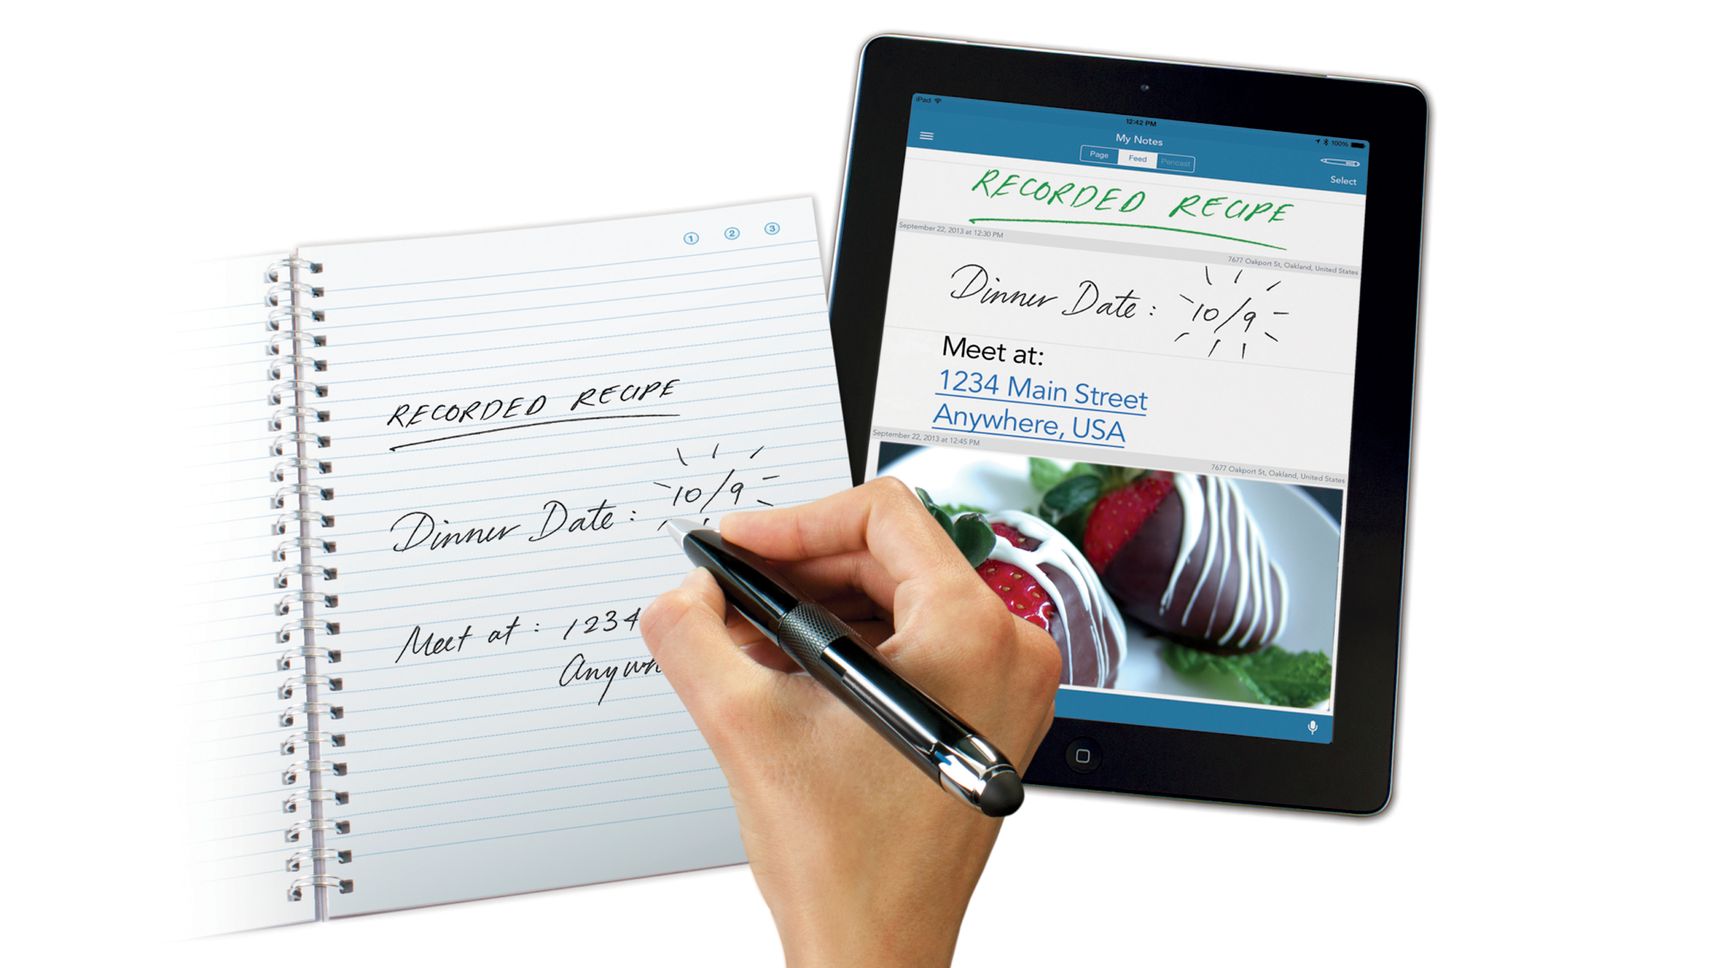 1 2 3
RECORDED RECIPE
Dinner Date : 10/9
Meet at : 1234
Anywh
iPad
12:42 PM
100%
My Notes
Page Feed Pencast
Select
RECORDED RECIPE
September 22, 2013 at 12:30 PM
7677 Oakport St, Oakland, United States
Dinner Date : 10/9
Meet at:
1234 Main Street
Anywhere, USA
September 22, 2013 at 12:45 PM
7677 Oakport St, Oakland, United States